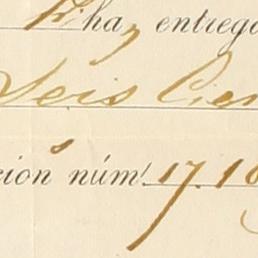 H. han entreg
Seis Cien
s
ción núm. 17.16